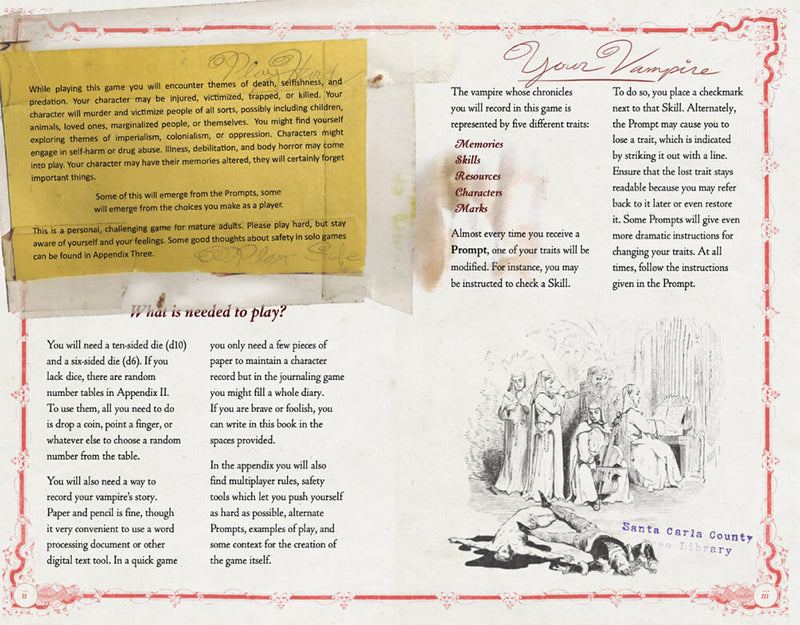 Play Hard
While playing this game you will encounter themes of death, selfishness, and
predation. Your character may be injured, victimized, trapped, or killed. Your
character will murder and victimize people of all sorts, possibly including children,
animals, loved ones, marginalized people, or themselves. You might find yourself
exploring themes of imperialism, colonialism, or oppression. Characters might
engage in self-harm or drug abuse. Illness, debilitation, and body horror may come
into play. Your character may have their memories altered, they will certainly forget
important things.
Some of this will emerge from the Prompts, some
will emerge from the choices you make as a player.
This is a personal, challenging game for mature adults. Please play hard, but stay
aware of yourself and your feelings. Some good thoughts about safety in solo games
can be found in Appendix Three.
Play Safe
What is needed to play?
You will need a ten-sided die (d10)
and a six-sided die (d6). If you
lack dice, there are random
number tables in Appendix II.
To use them, all you need to do
is drop a coin, point a finger, or
whatever else to choose a random
number from the table.
You will also need a way to
record your vampire's story.
Paper and pencil is fine, though
it very convenient to use a word
processing document or other
digital text tool. In a quick game
you only need a few pieces of
paper to maintain a character
record but in the journaling game
you might fill a whole diary.
If you are brave or foolish, you
can write in this book in the
spaces provided.
In the appendix you will also
find multiplayer rules, safety
tools which let you push yourself
as hard as possible, alternate
Prompts, examples of play, and
some context for the creation of
the game itself.
ii
Your Vampire
The vampire whose chronicles
you will record in this game is
represented by five different traits:
Memories
Skills
Resources
Characters
Marks
Almost every time you receive a
Prompt, one of your traits will be
modified. For instance, you may
be instructed to check a Skill.
To do so, you place a checkmark
next to that Skill. Alternately,
the Prompt may cause you to
lose a trait, which is indicated
by striking it out with a line.
Ensure that the lost trait stays
readable because you may refer
back to it later or even restore
it. Some Prompts will give even
more dramatic instructions for
changing your traits. At all
times, follow the instructions
given in the Prompt.
Santa Carla County
Library
iii